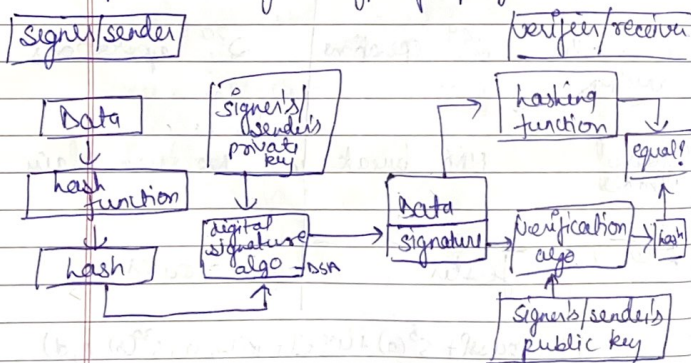 Signer/sender
verifier/receiver
Data
hash
function
hash
signer's/
sender's
private
key
digital
signature
algo - DSA
Data
signature
hashing
function
equal?
verification
algo
hash
signer's/sender's
public key